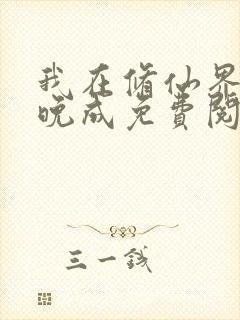 我在修仙界
晚成免费阅
三一钱